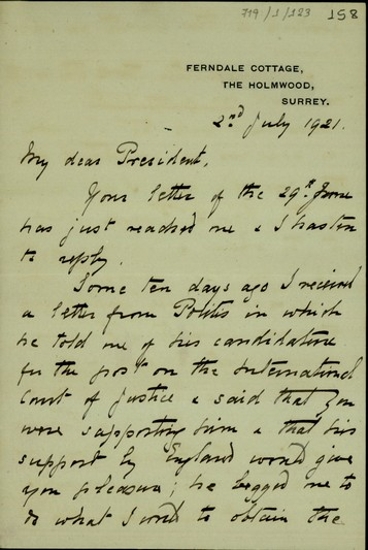 719/1/123 158
FERNDALE COTTAGE,
THE HOLMWOOD,
SURREY.
2nd July 1921.
My dear President,
Your letter of the 29th June
has just reached me & I hasten
to reply.
Some ten days ago I received
a letter from Politis in which
he told me of his candidature
for the post on the International
Court of Justice & said that you
were supporting him & that his
support by England would give
you pleasure; he begged me to
do what I could to obtain the